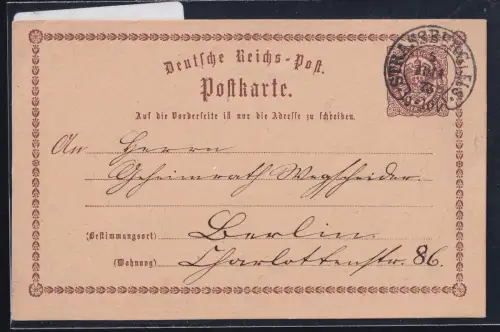 Deutsche Reichs-Post.
Postkarte.
STRASSBURG i. ELS.
Auf die Vorderseite ist nur die Adresse zu schreiben.
An Herrn
Geheimrath Wegscheider
(Bestimmungsort) Berlin
(Wohnung) Charlottenstr. 86.